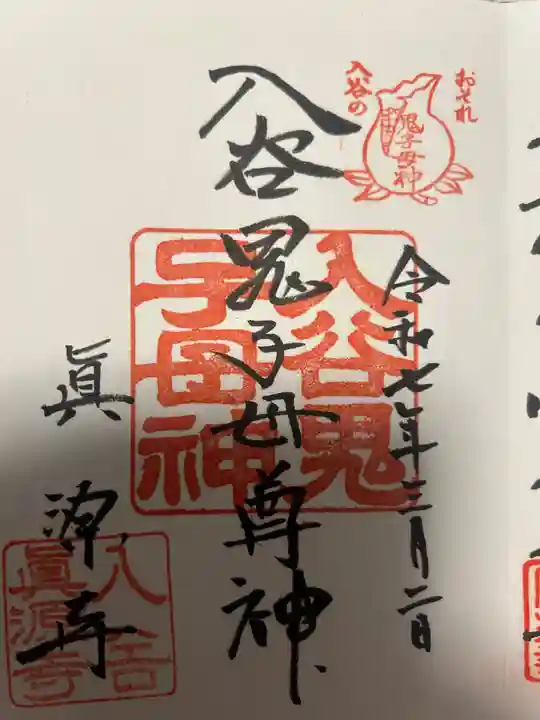 おそれ
入谷の
鬼子母神
令和七年三月二日
入谷鬼子母尊神
入谷鬼
子母神
眞源寺
入谷
眞源寺